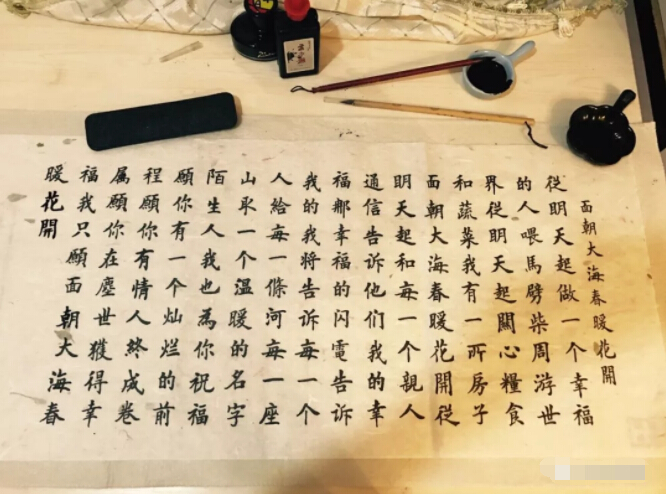 面朝大海春暖花開
從明天起做一个幸福
的人喂馬劈柴周游世
界從明天起關心糧食
和蔬菜我有一所房子
面朝大海春暖花開從
明天起和每一个親人
通信告诉他们我的幸
福那幸福的闪電告诉
我的我將告诉每一个
人給每一條河每一座
山取一个温暖的名字
陌生人我也為你祝福
願你有一个灿烂的前
程願你有情人終成卷
属願你在塵世獲得幸
福我只願面朝大海春
暖花開